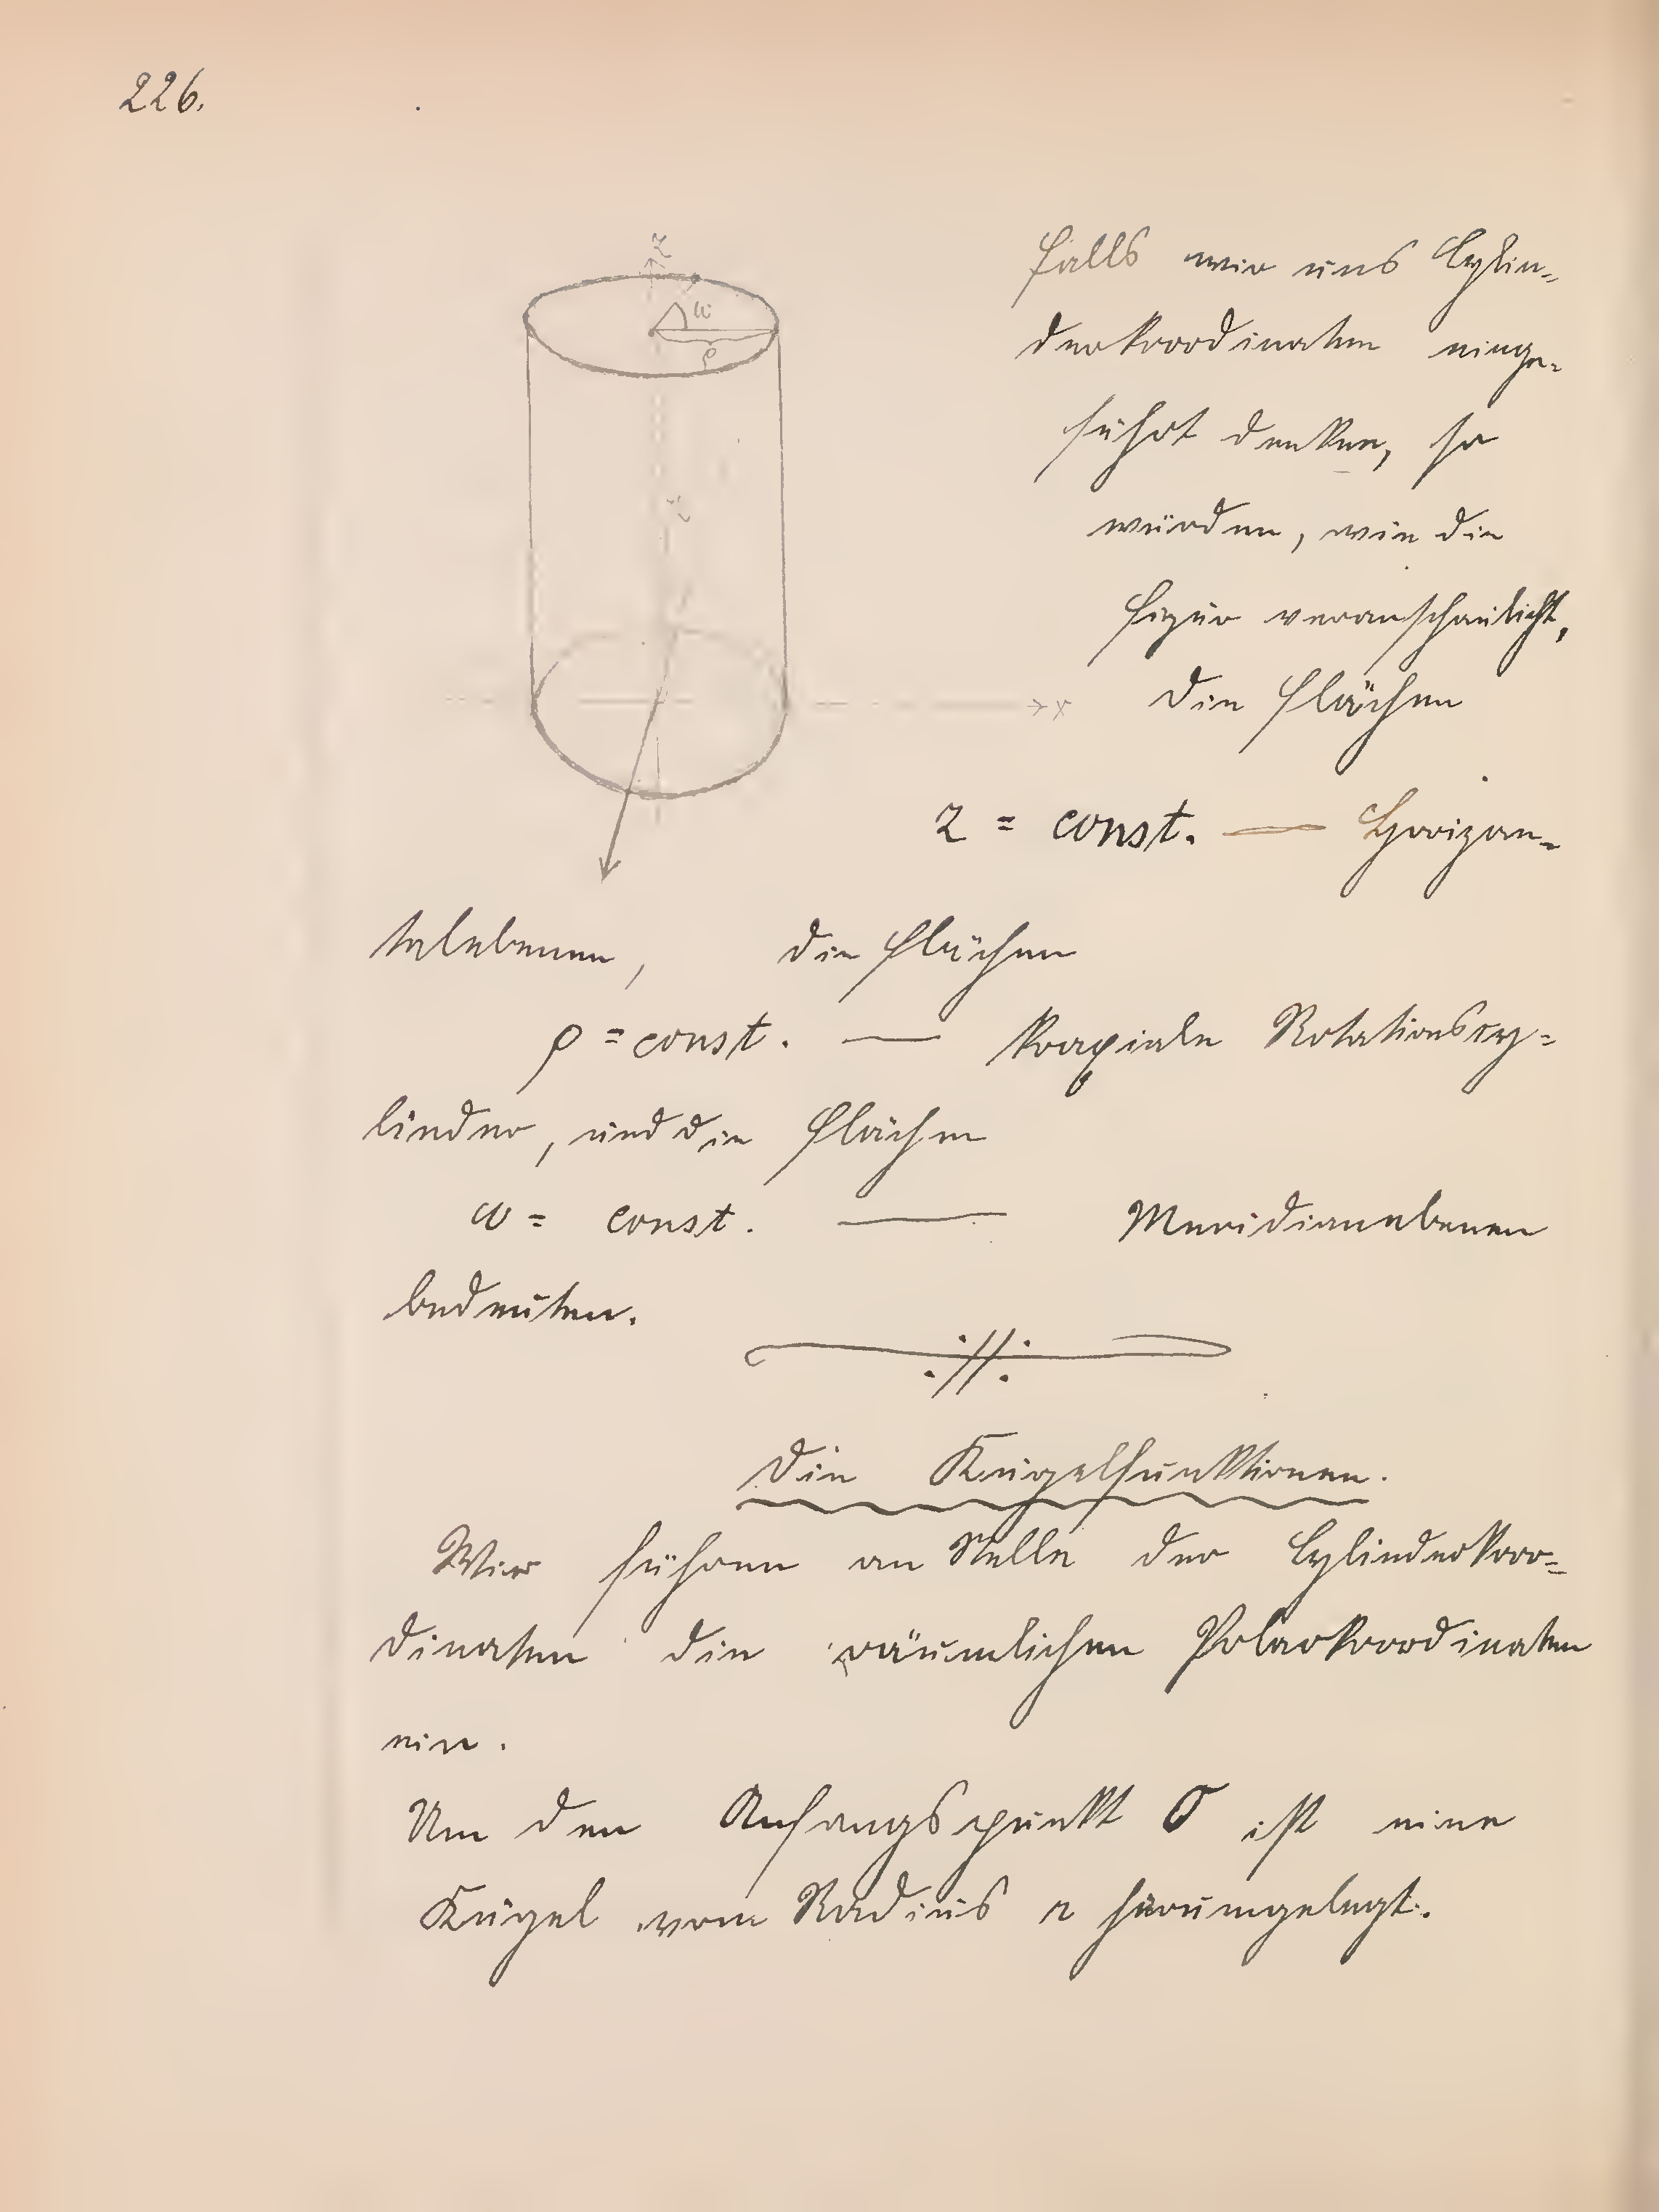 226.
z
ω
ρ
z
x
Falls wir uns Cylin-
derkoordinaten einge-
führt denken, so
würden, wie die
Figur veranschaulicht,
die Flächen
z = const. — Horizon-
talebenen, die Flächen
ρ = const. — koaxiale Rotationscy-
linder, und die Flächen
ω = const. — Meridianebenen
bedeuten.
Die Kugelfunktionen.
Wir führen an Stelle der Cylinderkoor-
dinaten die räumlichen Polarkoordinaten
ein.
Um den Anfangspunkt O ist eine
Kugel vom Radius r herumgelegt.